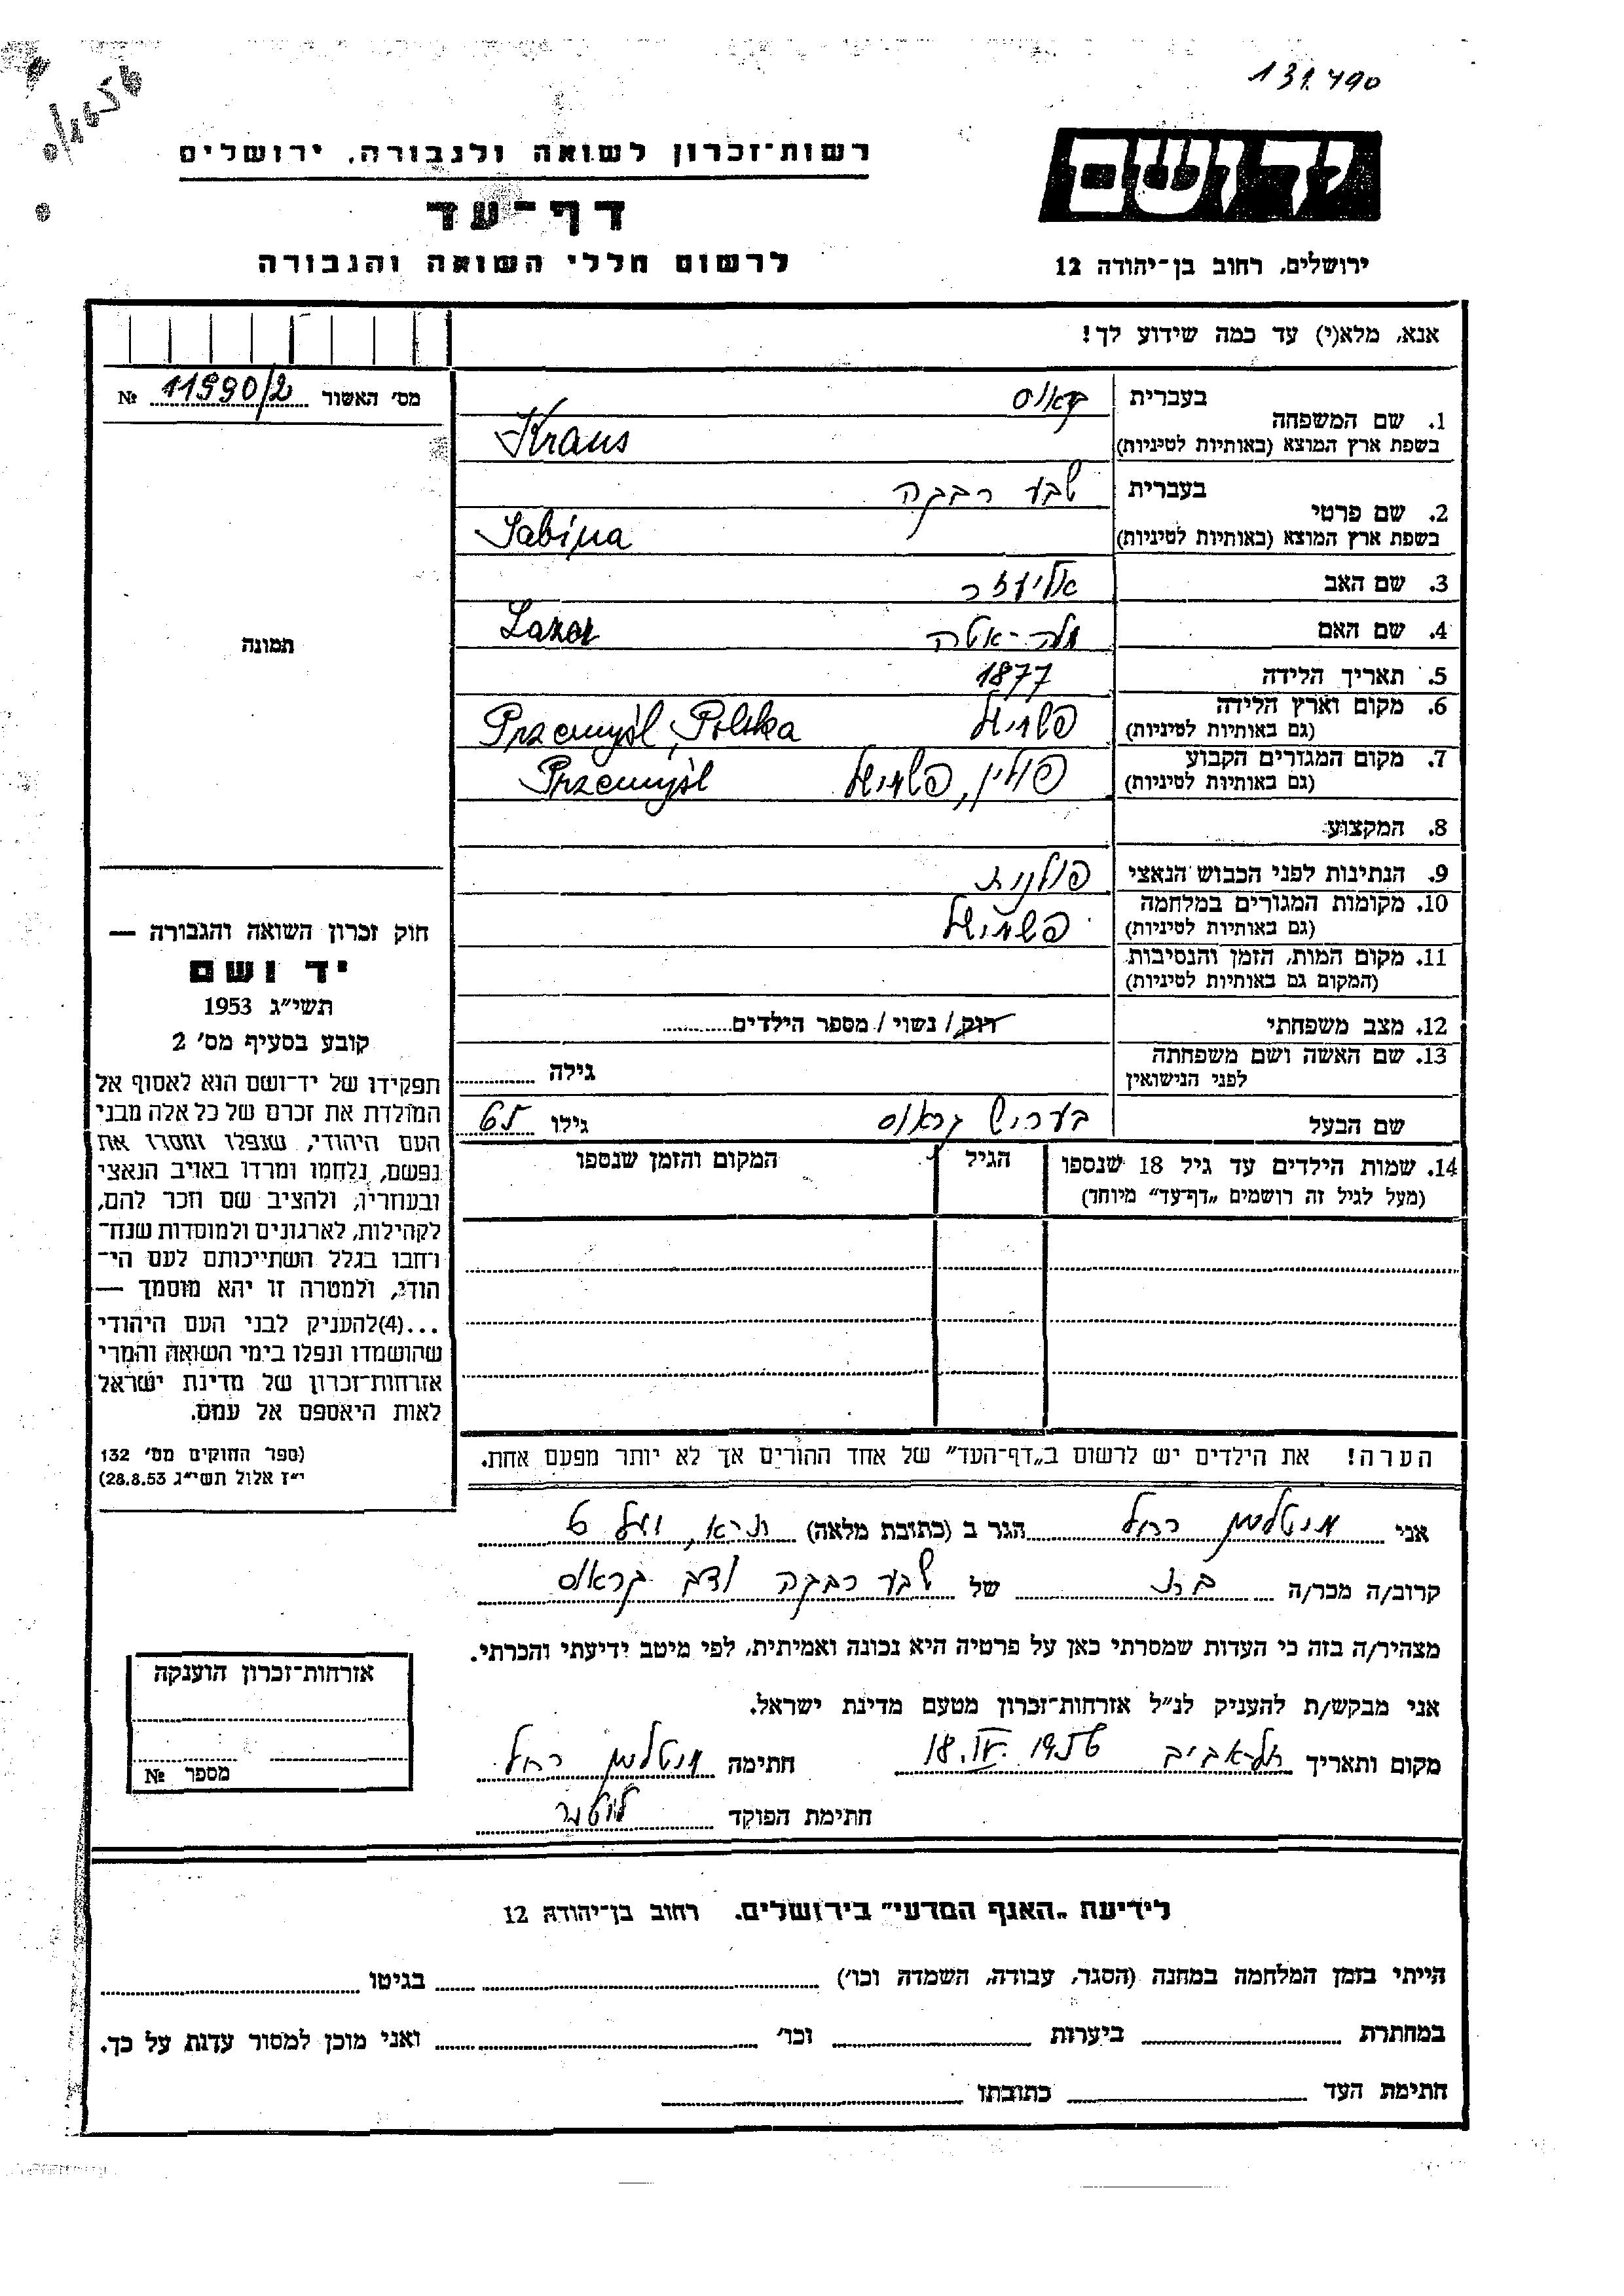 131.490
יד ושם
רשות־זכרון לשואה ולגבורה, ירושלים
דף־עד
לרשום חללי השואה והגבורה
ירושלים, רחוב בן־יהודה 12
אנא, מלא(י) עד כמה שידוע לך!
מס׳ האשור 11990/2 №
תמונה
1. שם המשפחה בעברית קראוס
בשפת ארץ המוצא (באותיות לטיניות) Kraus
2. שם פרטי בעברית שבע רבקה
בשפת ארץ המוצא (באותיות לטיניות) Sabina
3. שם האב אליעזר
4. שם האם Lazar
5. תאריך הלידה 1877
6. מקום וארץ הלידה פשמישל Przemyśl, Polska
(גם באותיות לטיניות)
7. מקום המגורים הקבוע פולין, פשמישל Przemyśl
(גם באותיות לטיניות)
8. המקצוע
9. הנתינות לפני הכבוש הנאצי פולנית
10. מקומות המגורים במלחמה פשמישל
(גם באותיות לטיניות)
11. מקום המות, הזמן והנסיבות
(המקום גם באותיות לטיניות)
12. מצב משפחתי רוק/ נשוי/ מספר הילדים
13. שם האשה ושם משפחתה גילה
לפני הנישואין
שם הבעל בעריש קראוס גילו 65
14. שמות הילדים עד גיל 18 שנספו הגיל המקום והזמן שנספו
(מעל לגיל זה רושמים „דף־עד” מיוחד)
הערה! את הילדים יש לרשום ב„דף־העד” של אחד ההורים אך לא יותר מפעם אחת.
חוק זכרון השואה והגבורה —
יד ושם
תשי״ג 1953
קובע בסעיף מס׳ 2
תפקידו של יד־ושם הוא לאסוף אל
המולדת את זכרם של כל אלה מבני
העם היהודי, שנפלו ומסרו את
נפשם, נלחמו ומרדו באויב הנאצי
ובעוזריו, ולהציב שם וזכר להם,
לקהילות, לארגונים ולמוסדות שנח־
רבו בגלל השתייכותם לעם הי־
הודי, ולמטרה זו יהא מוסמך —
...(4)להעניק לבני העם היהודי
שהושמדו ונפלו בימי השואה והמרי
אזרחות־זכרון של מדינת ישראל
לאות היאספם אל עמם.
(ספר החוקים מס׳ 132
י״ז אלול תשי״ג 28.8.53)
אני רחל הגר ב (כתובת מלאה)
קרוב/ה מכר/ה בת של שבע רבקה ודב קראוס
מצהיר/ה בזה כי העדות שמסרתי כאן על פרטיה היא נכונה ואמיתית, לפי מיטב ידיעתי והכרתי.
אני מבקש/ת להעניק לנ״ל אזרחות־זכרון מטעם מדינת ישראל.
מקום ותאריך תל־אביב 18.IV.1956 חתימה רחל
חתימת הפוקד
אזרחות־זכרון הוענקה
מספר №
לידיעת „האגף המדעי” בירושלים, רחוב בן־יהודה 12
הייתי בזמן המלחמה במחנה (הסגר, עבודה, השמדה וכו׳) בגיטו
במחתרת ביערות וכו׳ ואני מוכן למסור עדות על כך.
חתימת העד כתובתו